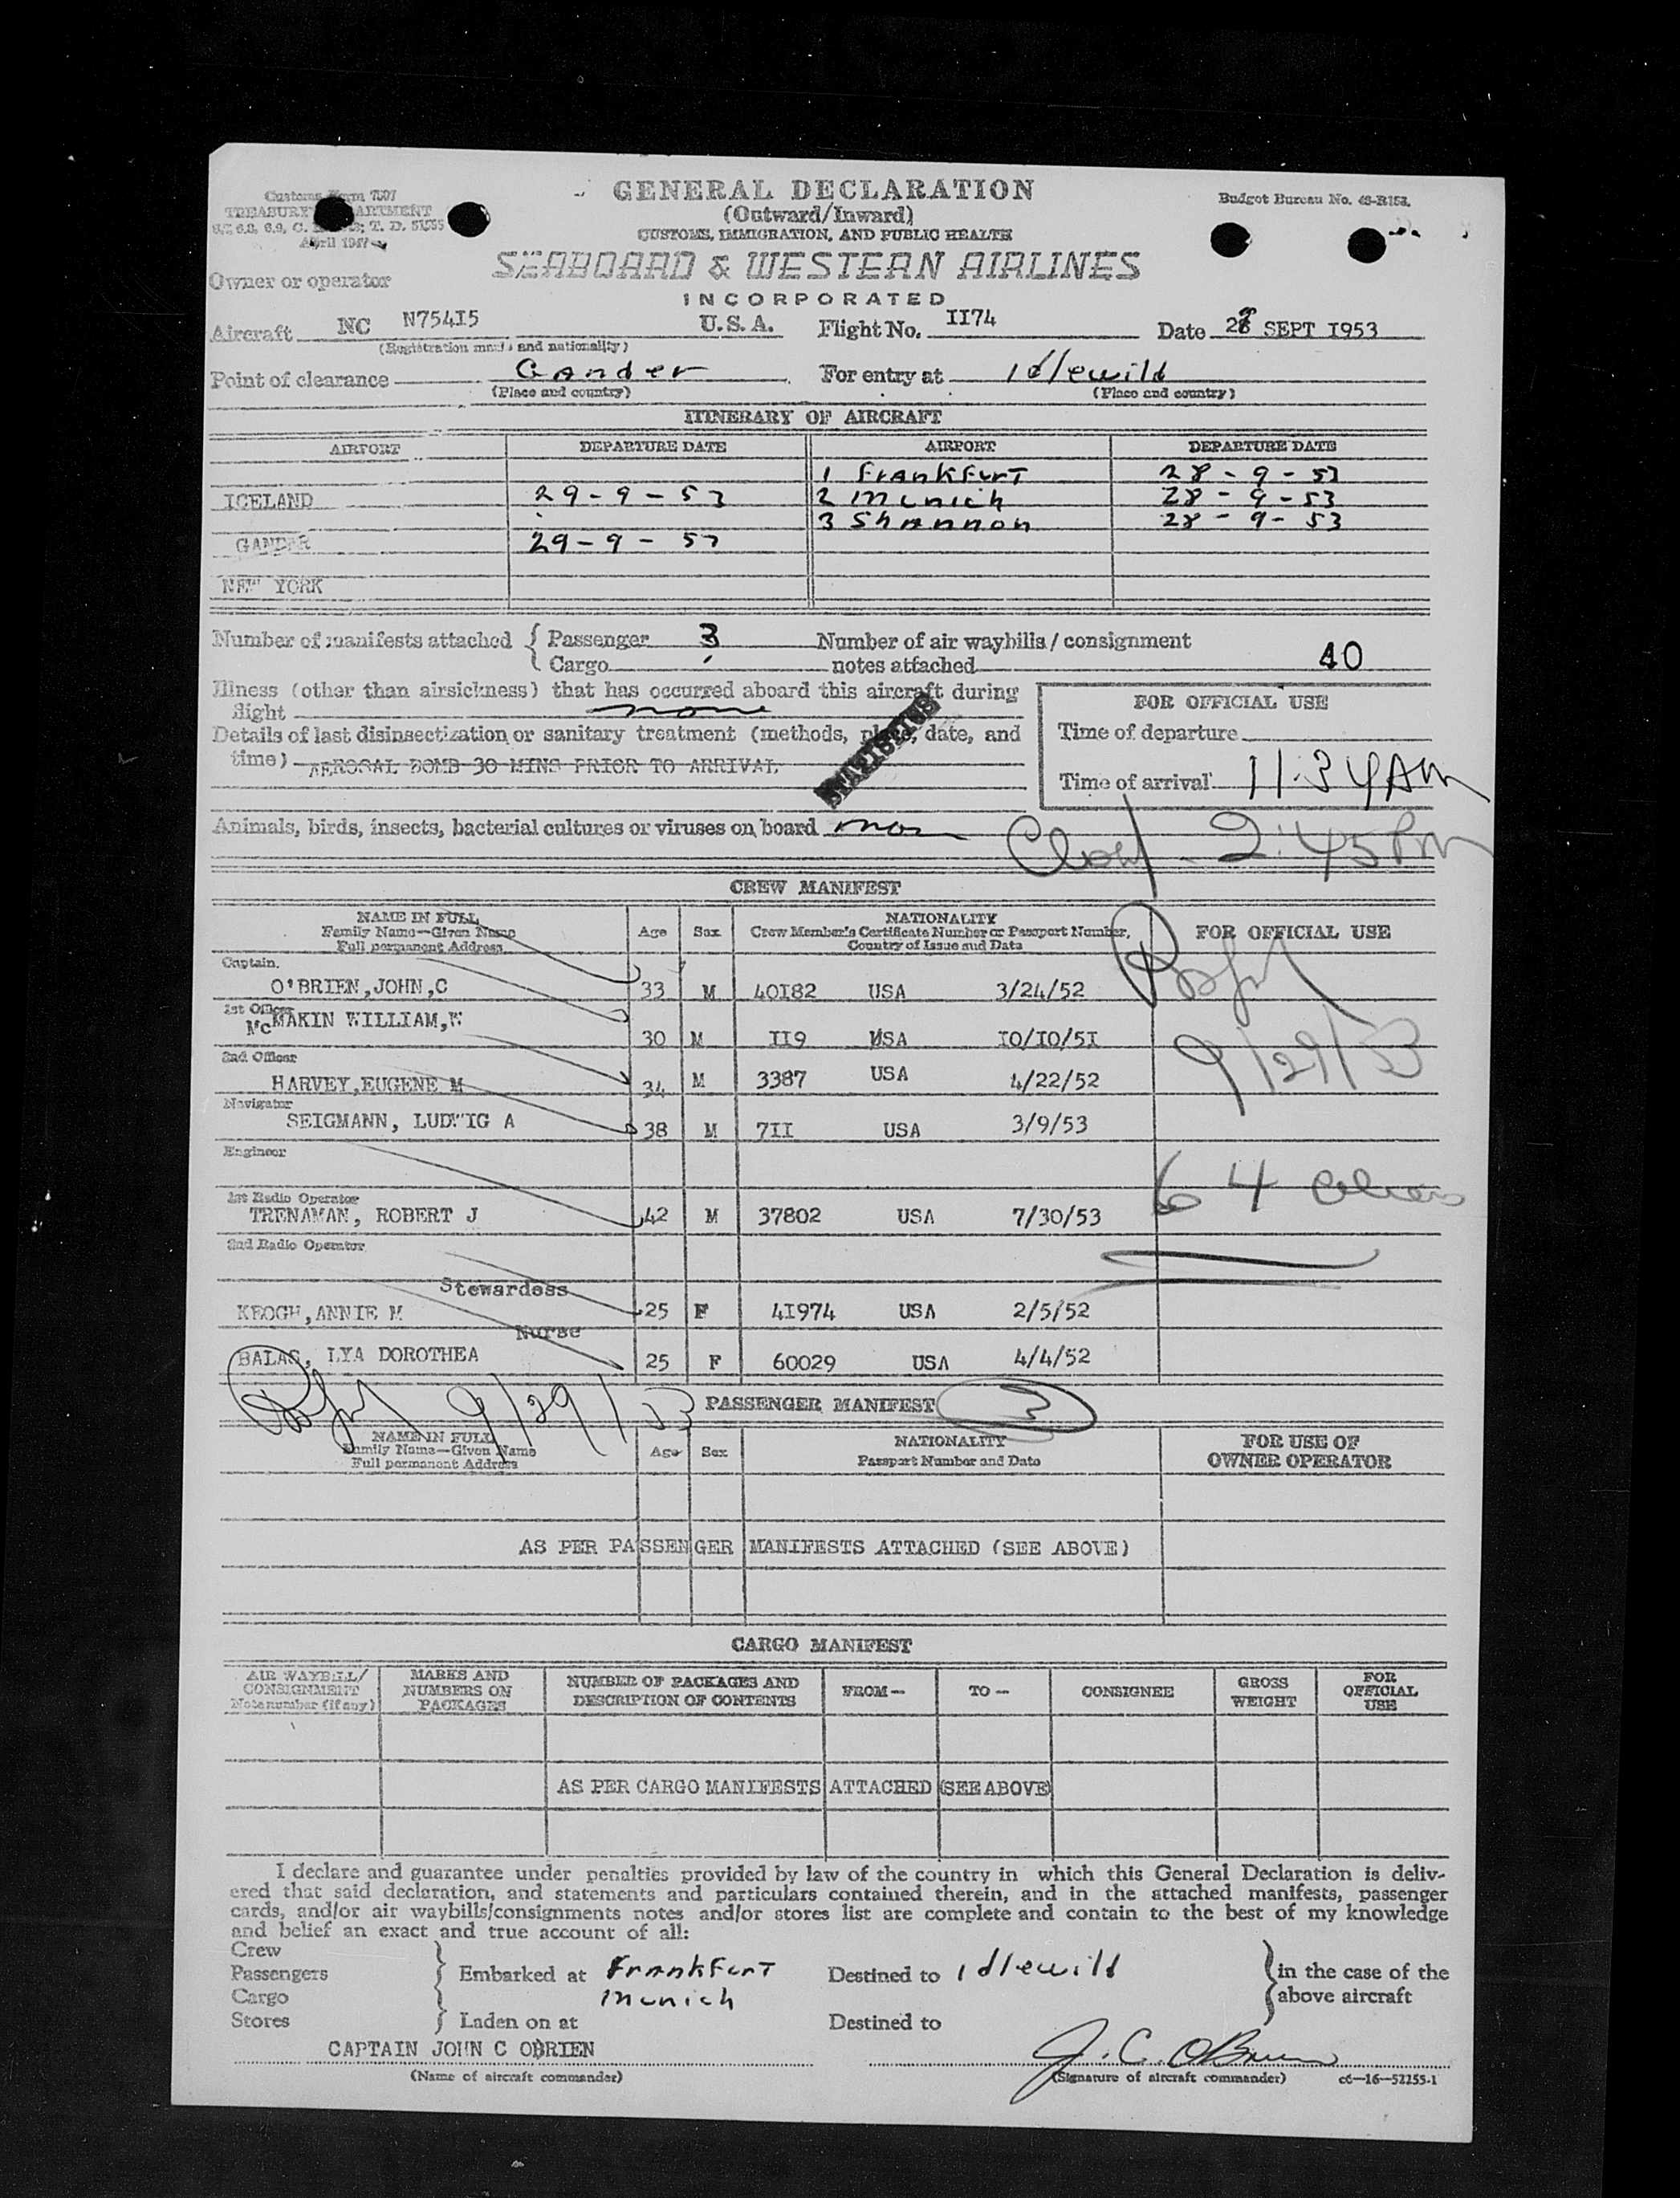 Customs Form 7507
TREASURY DEPARTMENT
April 1947
GENERAL DECLARATION
(Outward/Inward)
CUSTOMS, IMMIGRATION, AND PUBLIC HEALTH
Budget Bureau No. 48-R153.
SEABOARD & WESTERN AIRLINES
INCORPORATED
Owner or operator
Aircraft NC N75415 U.S.A. Flight No. II74 Date 28 SEPT I953
(Registration marks and nationality)
Point of clearance Gander For entry at Idlewild
(Place and country) (Place and country)
ITINERARY OF AIRCRAFT
AIRPORT DEPARTURE DATE AIRPORT DEPARTURE DATE
1 Frankfurt 28-9-53
ICELAND 29-9-53 2 Munich 28-9-53
3 Shannon 28-9-53
GANDER 29-9-53
NEW YORK
Number of manifests attached { Passenger 3 Number of air waybills / consignment
Cargo notes attached 40
Illness (other than airsickness) that has occurred aboard this aircraft during
flight none
FOR OFFICIAL USE
Details of last disinsectization or sanitary treatment (methods, place, date, and
time) AEROSAL BOMB 30 MINS PRIOR TO ARRIVAL
STATISTICS
Time of departure
Time of arrival 11:34AM
Animals, birds, insects, bacterial cultures or viruses on board non
2:45 PM
CREW MANIFEST
NAME IN FULL
Family Name—Given Name
Full permanent Address
Age Sex
NATIONALITY
Crew Member's Certificate Number or Passport Number,
Country of Issue and Date
FOR OFFICIAL USE
Captain.
O'BRIEN,JOHN,C 33 M 40I82 USA 3/24/52
1st Officer
McMAKIN WILLIAM,W 30 M II9 USA IO/IO/5I
9/29/53
2nd Officer
HARVEY,EUGENE M 34 M 3387 USA 4/22/52
Navigator
SEIGMANN, LUDWIG A 38 M 7II USA 3/9/53
Engineer
64
1st Radio Operator
TRENAMAN, ROBERT J 42 M 37802 USA 7/30/53
2nd Radio Operator
Stewardess
KEOGH,ANNIE M 25 F 4I974 USA 2/5/52
Nurse
BALAS, LYA DOROTHEA 25 F 60029 USA 4/4/52
9/29/53 PASSENGER MANIFEST 3
NAME IN FULL
Family Name—Given Name
Full permanent Address
Age Sex
NATIONALITY
Passport Number and Date
FOR USE OF
OWNER OPERATOR
AS PER PASSENGER MANIFESTS ATTACHED (SEE ABOVE)
CARGO MANIFEST
AIR WAYBILL/
CONSIGNMENT
Note number (if any)
MARKS AND
NUMBERS ON
PACKAGES
NUMBER OF PACKAGES AND
DESCRIPTION OF CONTENTS
FROM—
TO—
CONSIGNEE
GROSS
WEIGHT
FOR
OFFICIAL
USE
AS PER CARGO MANIFESTS ATTACHED (SEE ABOVE)
I declare and guarantee under penalties provided by law of the country in which this General Declaration is deliv-
ered that said declaration, and statements and particulars contained therein, and in the attached manifests, passenger
cards, and/or air waybills/consignments notes and/or stores list are complete and contain to the best of my knowledge
and belief an exact and true account of all:
Crew
Passengers } Embarked at Frankfurt Destined to Idlewild } in the case of the
Cargo Munich above aircraft
Stores } Laden on at Destined to
CAPTAIN JOHN C OBRIEN J. C. OBrien
(Name of aircraft commander) (Signature of aircraft commander) c6—16—52255-1